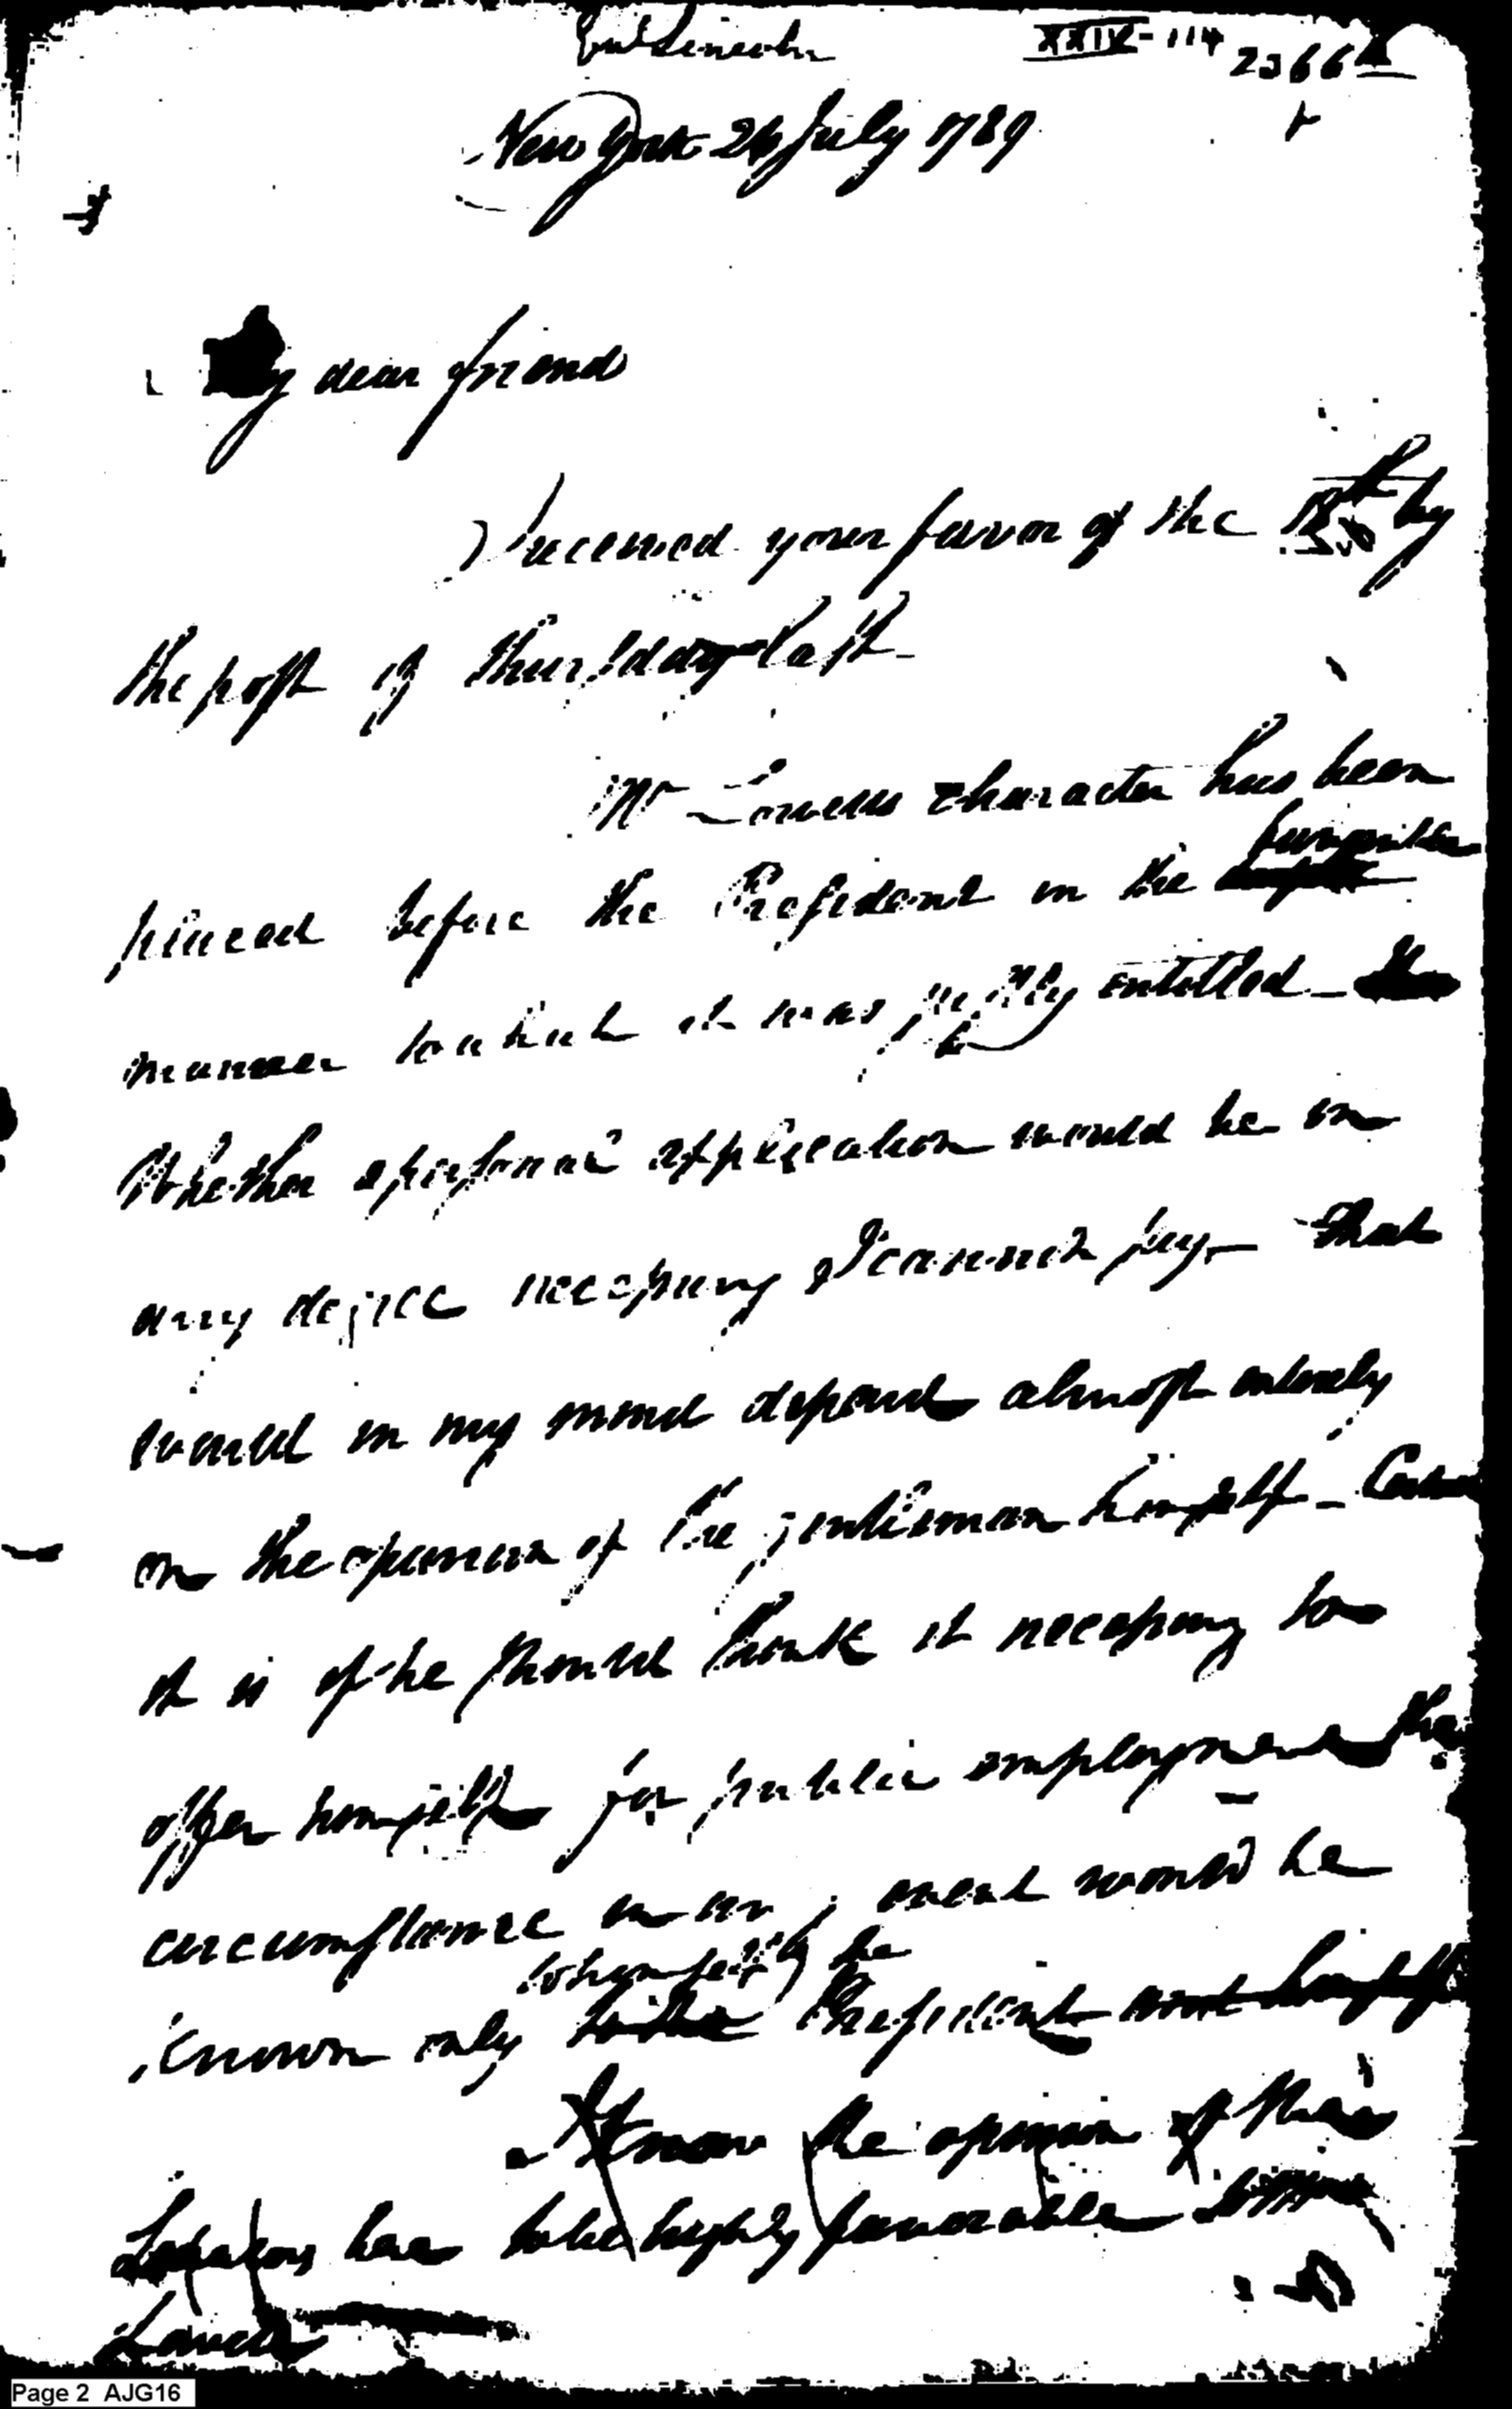 Genl Lincoln
XXIV-114
New York 24 July 1789
My dear friend
I received your favor of the by
the post of thursday last
Mr Lowells character has been
placed before the President in the favorable
manner to which it was justly entitled
Whether a personal application would be in
any degree necessary I cannot say – that
would in my mind depend almost entirely
on the opinion of the gentleman himself –
it is if he should think it necessary to
offer himself for public employment the
circumstance in any event would be
known only to himself & the
to the President and himself
I know the opinion of this
to be highly favorable
Lowell
Page 2 AJG16